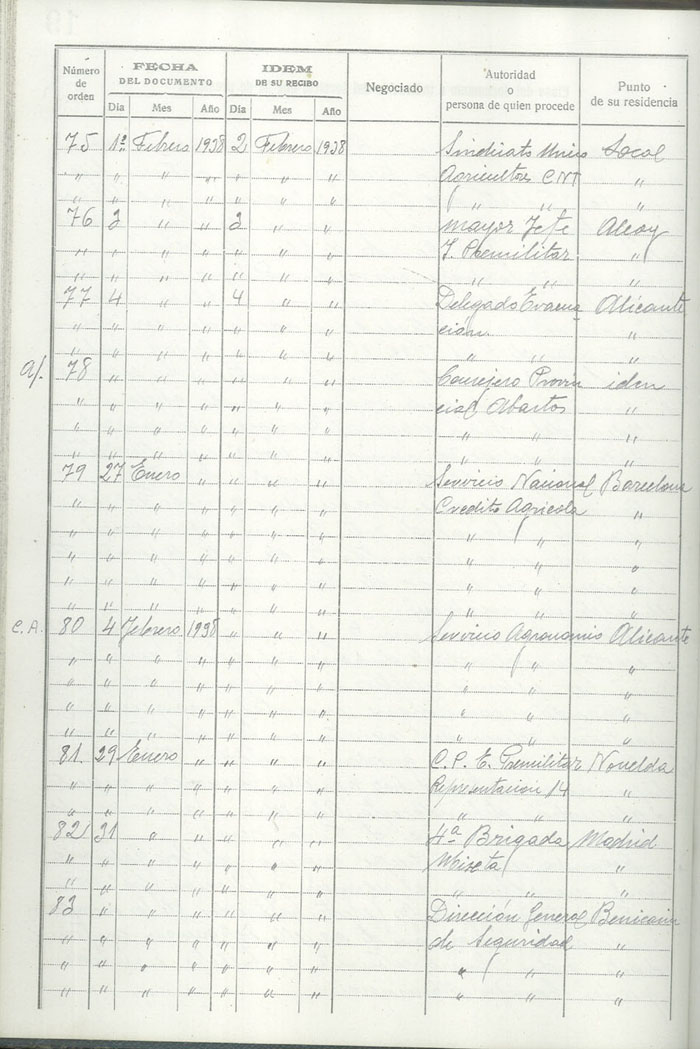 Número de orden | FECHA DEL DOCUMENTO | IDEM DE SU RECIBO | Negociado | Autoridad o persona de quien procede | Punto de su residencia
Día | Mes | Año | Día | Mes | Año
75 1º Febrero 1938 2 Febrero 1938 Sindicato Unico Local
" " " " " " " Agricultores CNT "
" " " " " " " " " "
76 2 " " 2 " " Mayor Jefe Alcoy
" " " " " " " I. Premilitar "
" " " " " " " " " "
77 4 " " 4 " " Delegado Evacua Alicante
" " " " " " " cion "
" " " " " " " " " "
a/. 78 " " " " " " Consejero Provin iden
" " " " " " " cial Abastos "
" " " " " " " " " "
" " " " " " " " " "
79 27 Enero " " " " Servicio Nacional Barcelona
" " " " " " " Credito Agricola "
" " " " " " " " " "
" " " " " " " " " "
" " " " " " " " " "
" " " " " " " " " "
C.A. 80 4 Febrero 1938 " " " Servicio Agronomio Alicante
" " " " " " " " " "
" " " " " " " " " "
" " " " " " " " " "
" " " " " " " " " "
81 29 Enero " " " " C.P.E. Premilitar Novelda
" " " " " " " Representacion 14 "
" " " " " " " " " "
82 31 " " " " " 4ª Brigada Madrid
" " " " " " " Mixta "
" " " " " " " " " "
83 " " " " " " Dirección General
" " " " " " " de Seguridad "
" " " " " " " " " "
" " " " " " " " " "